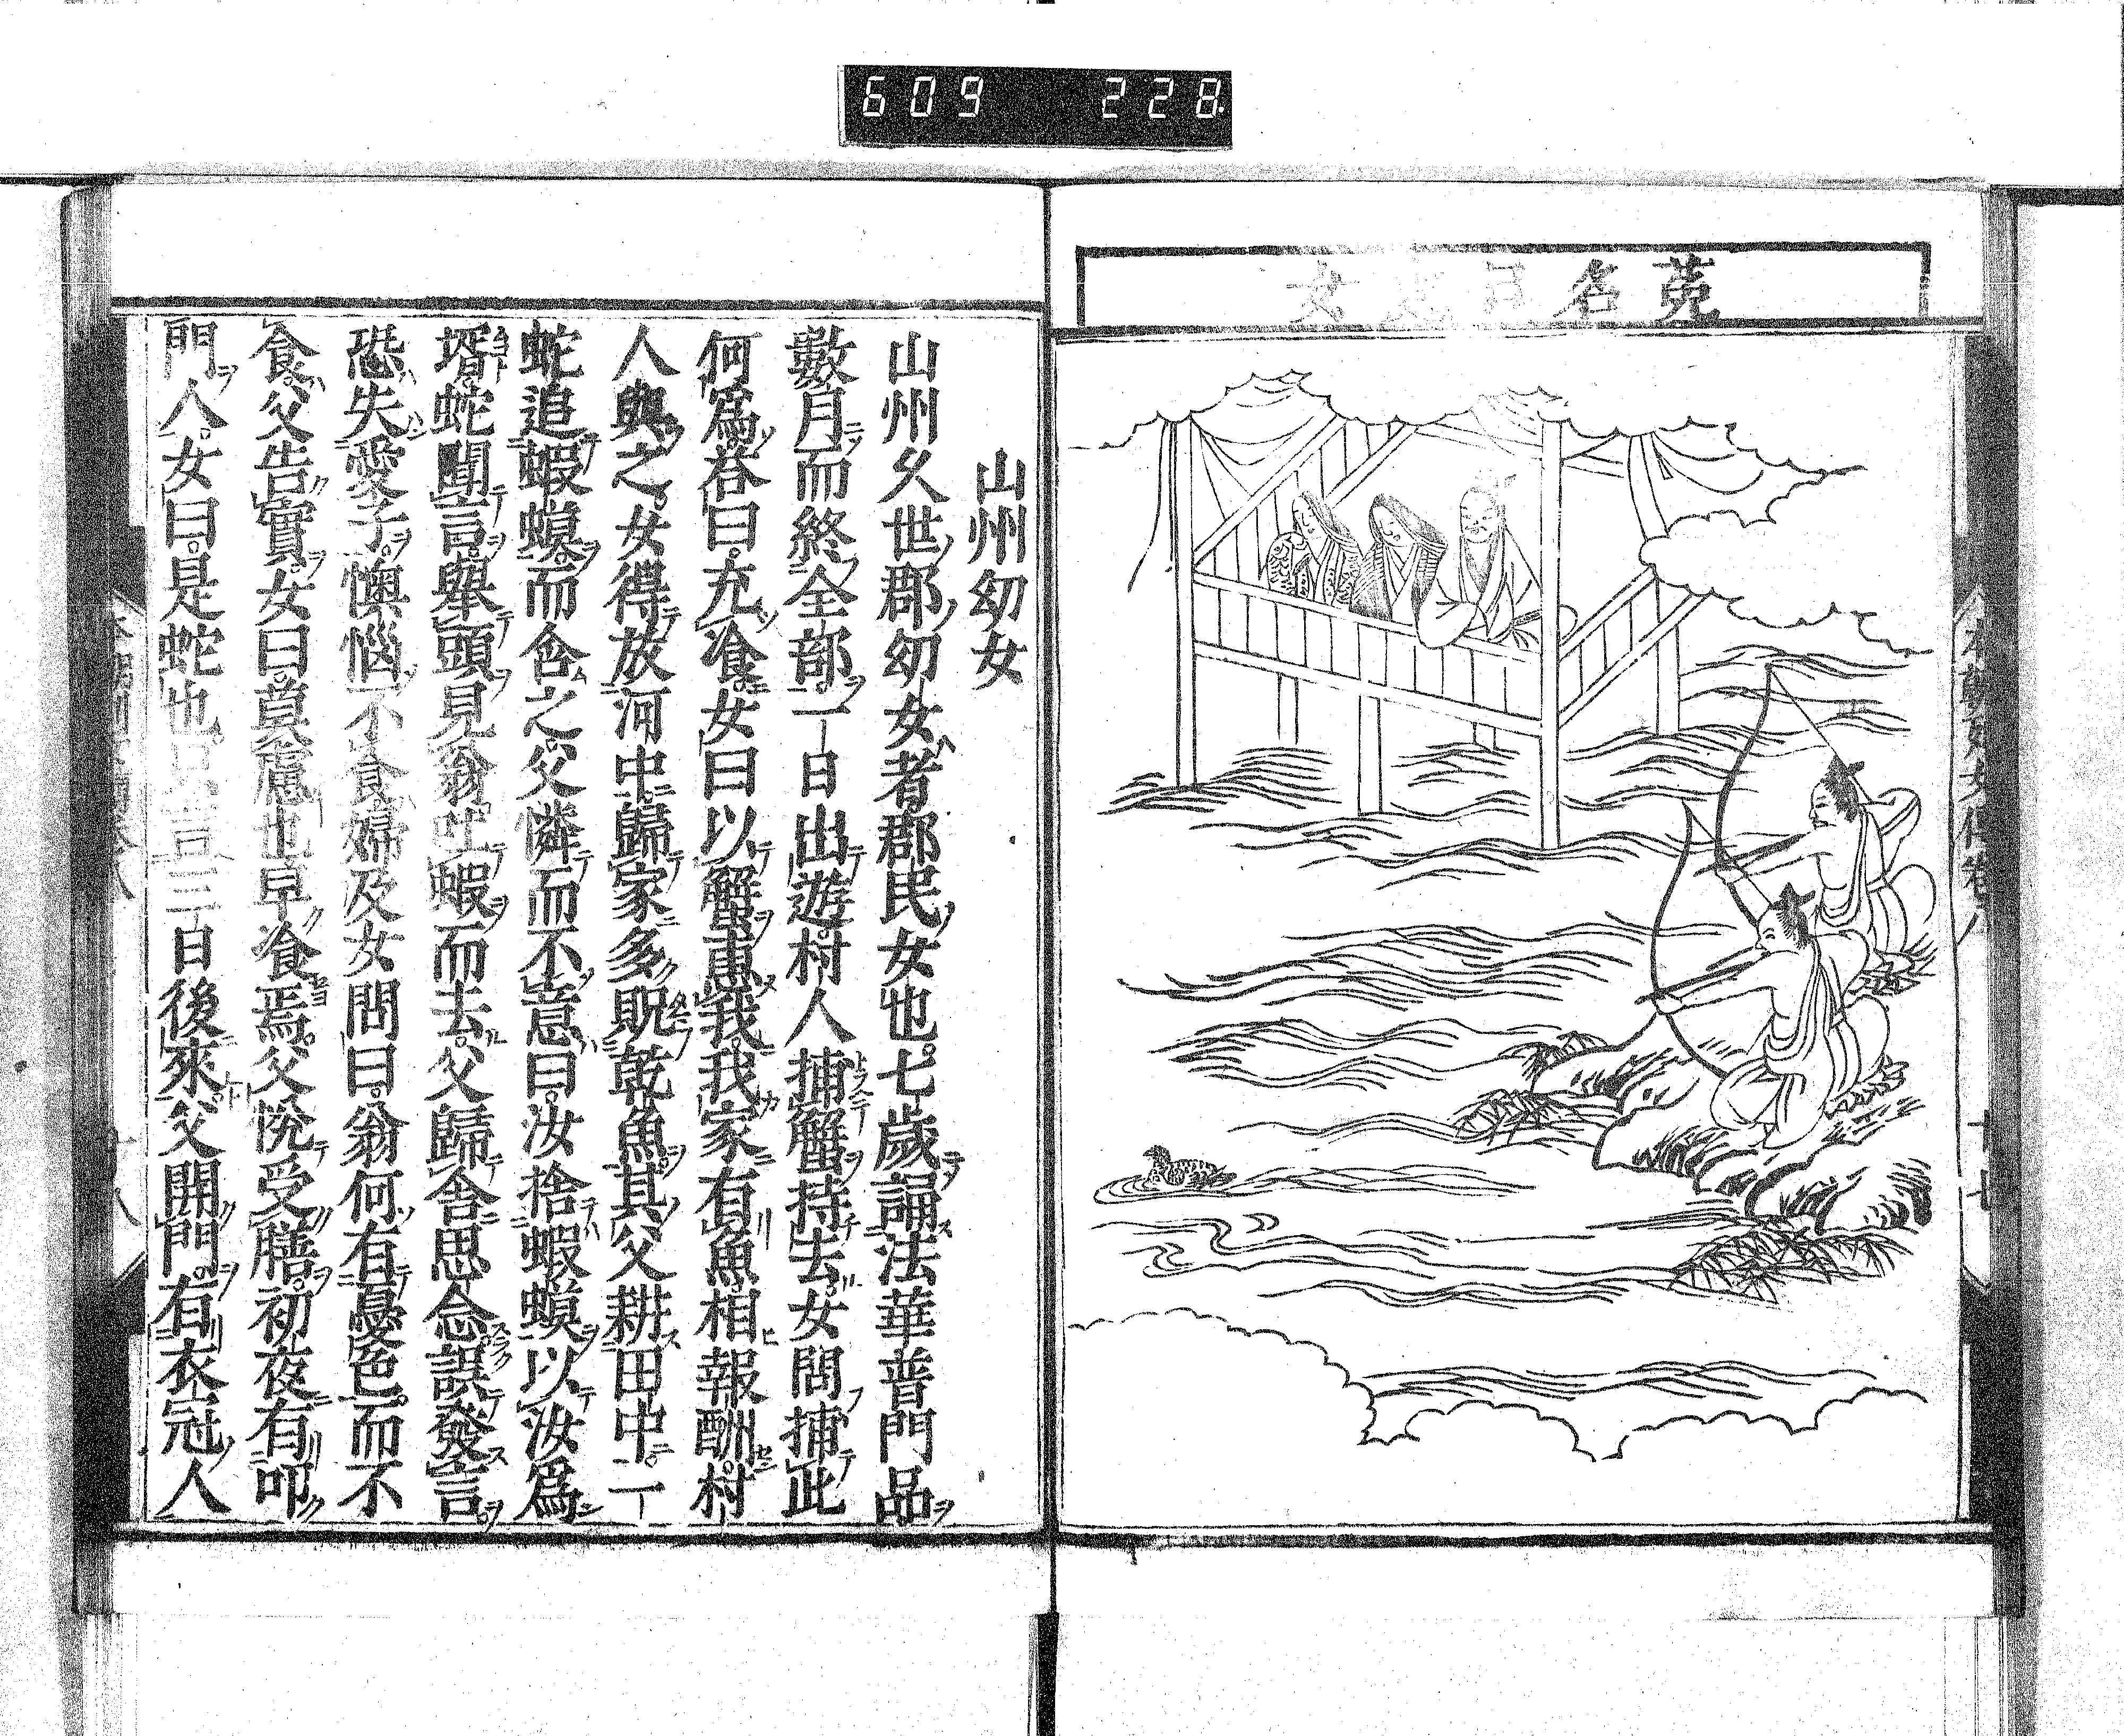 609 228
菟名
本朝列女傳卷八
十七
山州幼女
山州久世郡幼女者郡民女也七歲誦法華普門品
數月而終全部一日出遊村人捕蟹持去女問捕此
何爲答曰充飡女曰以蟹惠我我家有魚相報酬村
人與之女得放河中歸家多貺乾魚其父耕田中一
蛇追蝦蟆而含之父憐而不意曰汝捨蝦蟆以汝爲
壻蛇聞言舉頭見翁吐蝦而去父歸舍思念誤發言
恐失愛子懊惱不食婦及女問曰翁何有憂色而不
食父告實女曰莫慮也早飡焉父悅受膳初夜有叩
門人女曰是蛇也三日後來父開門有衣冠人